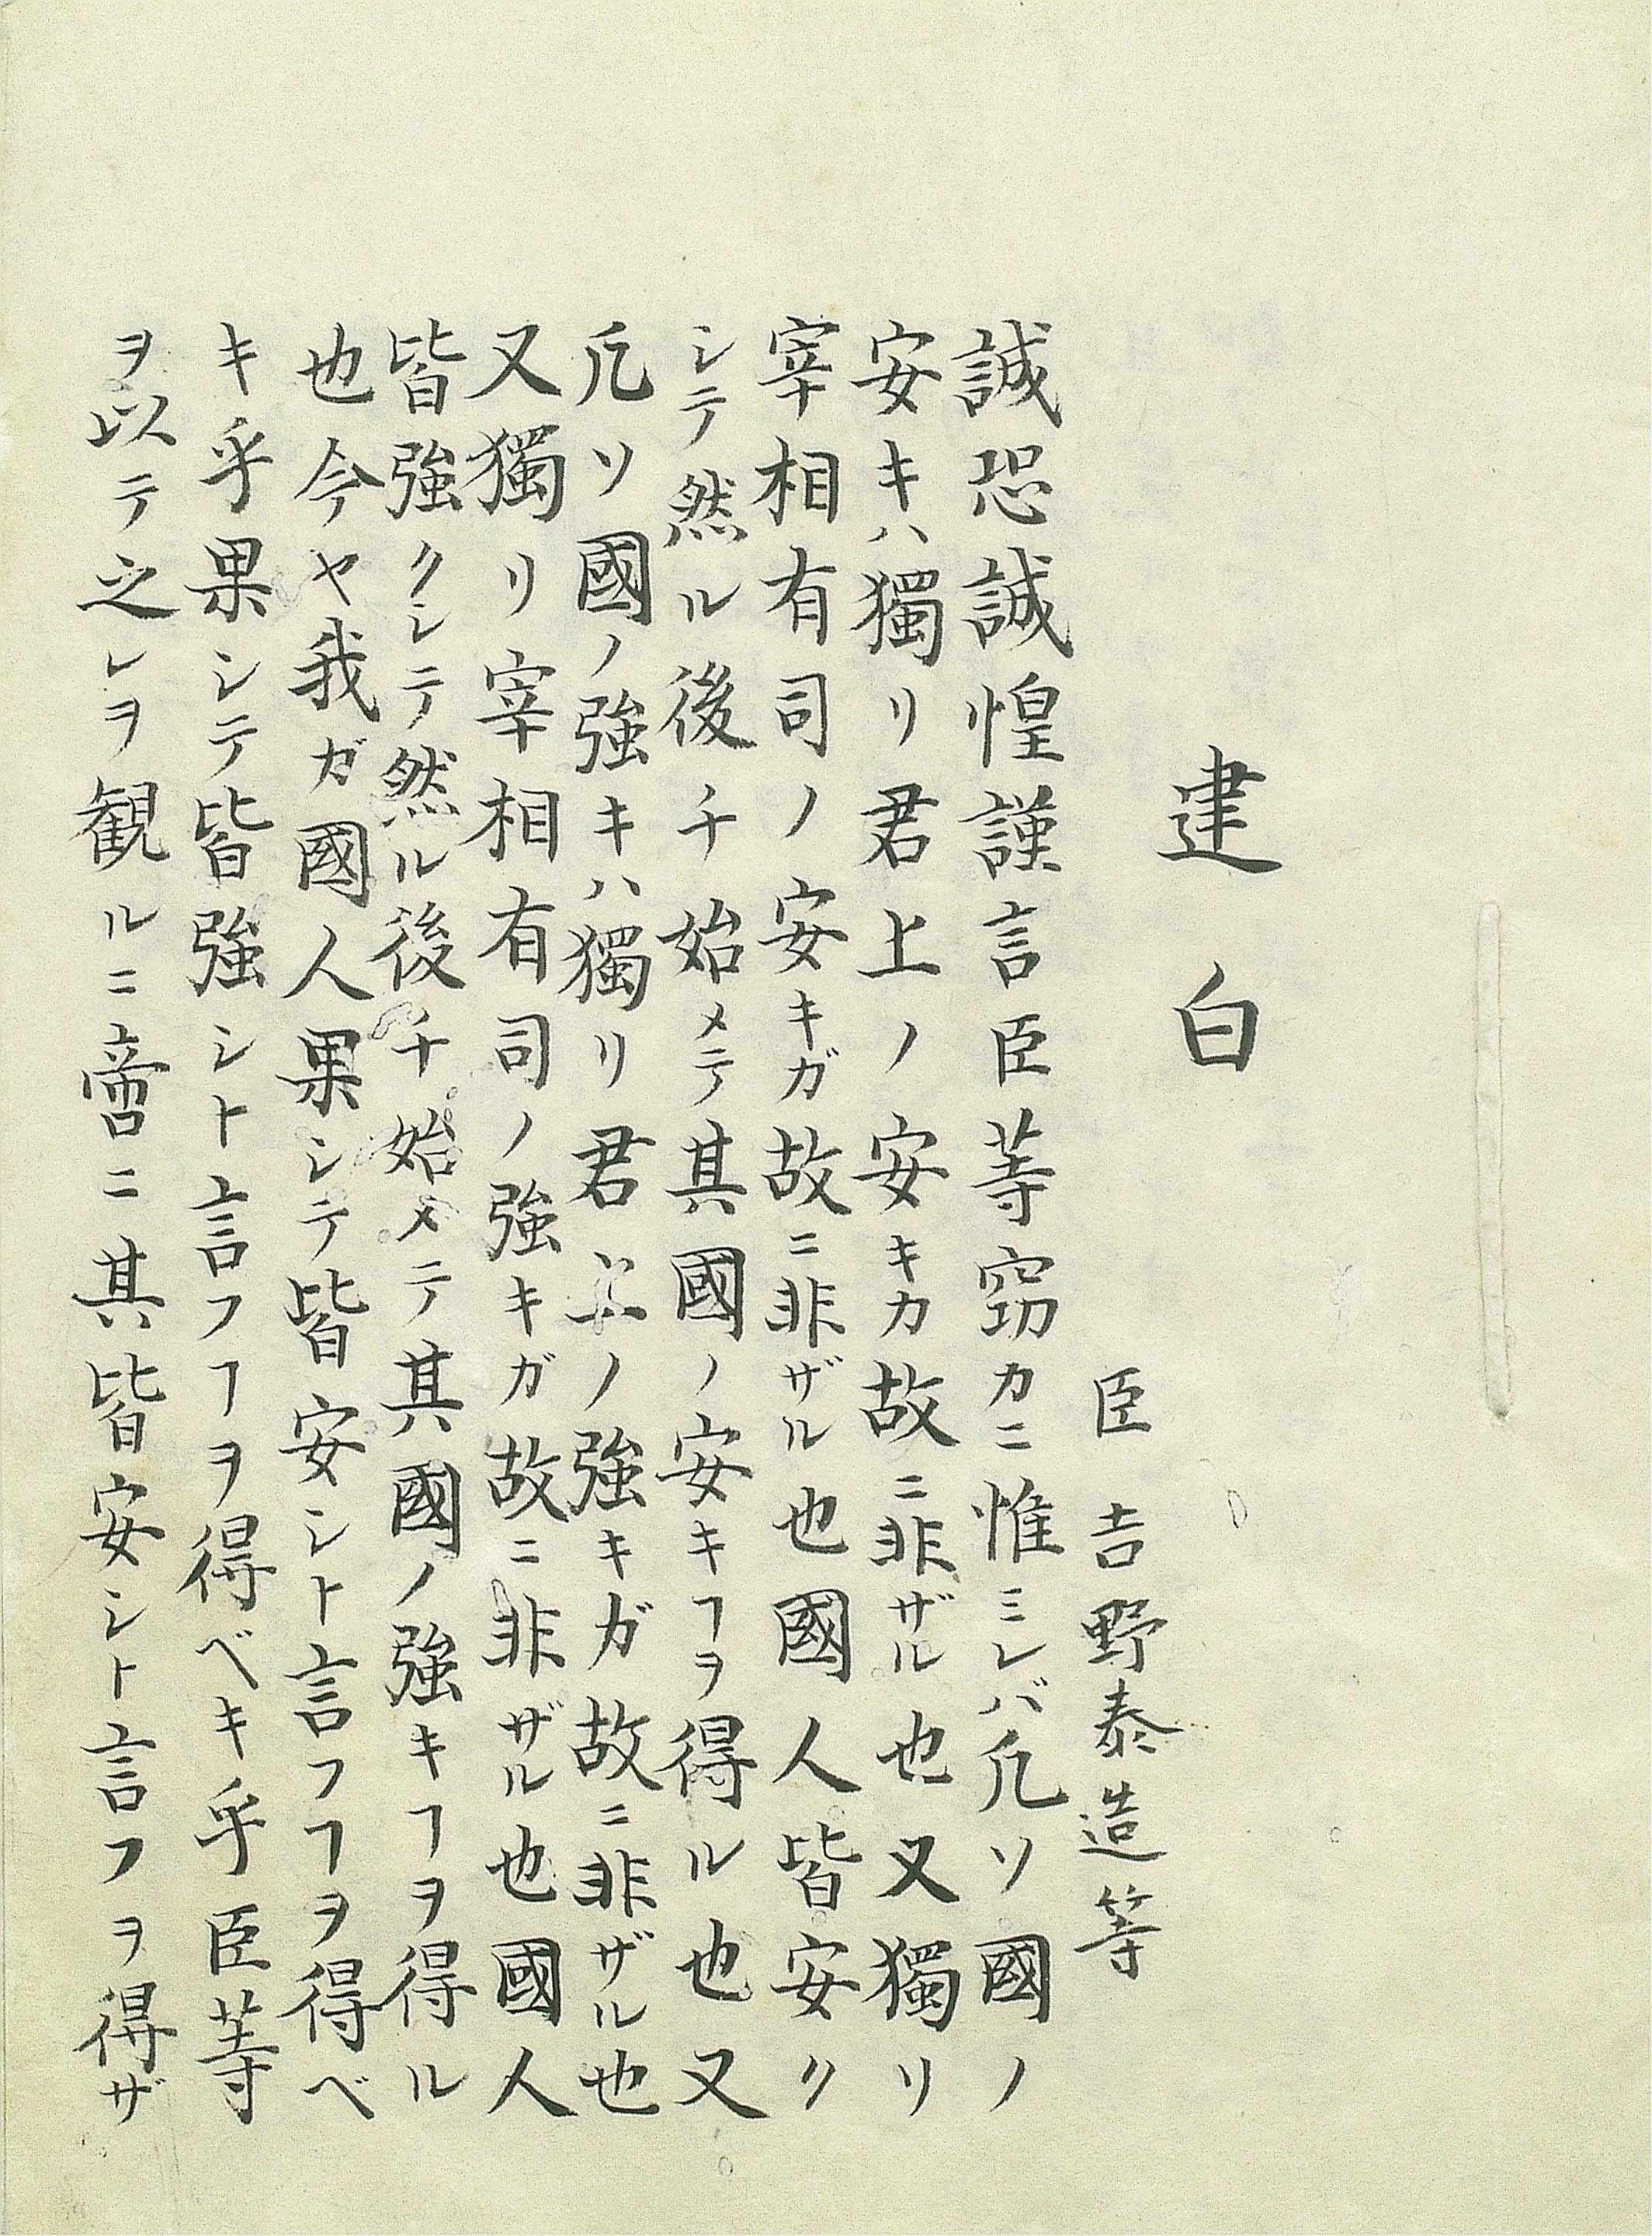 建白
臣吉野泰造等
誠恐誠惶謹言臣等窃カニ惟ミレバ凢ソ國ノ
安キハ獨リ君上ノ安キカ故ニ非ザル也又獨リ
宰相有司ノ安キガ故ニ非ザル也國人皆安ク
シテ然ル後チ始メテ其國ノ安キヿヲ得ル也又
凢ソ國ノ強キハ獨リ君上ノ強キガ故ニ非ザル也
又獨リ宰相有司ノ強キガ故ニ非ザル也國人
皆強クシテ然ル後チ始メテ其國ノ強キヿヲ得ル
也今ヤ我ガ國人果シテ皆安シト言フヿヲ得ベ
キ乎果シテ皆強シト言フヿヲ得ベキ乎臣等
ヲ以テ之レヲ観ルニ啻ニ其皆安シト言フヲ得ザ